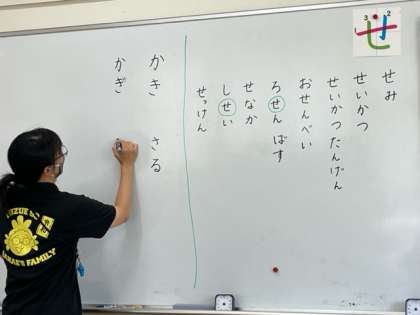 せ
せみ
せいかつ
せいかつたんげん
おせんべい
ろせんばす
せなか
しせい
せっけん
かき さる
かぎ